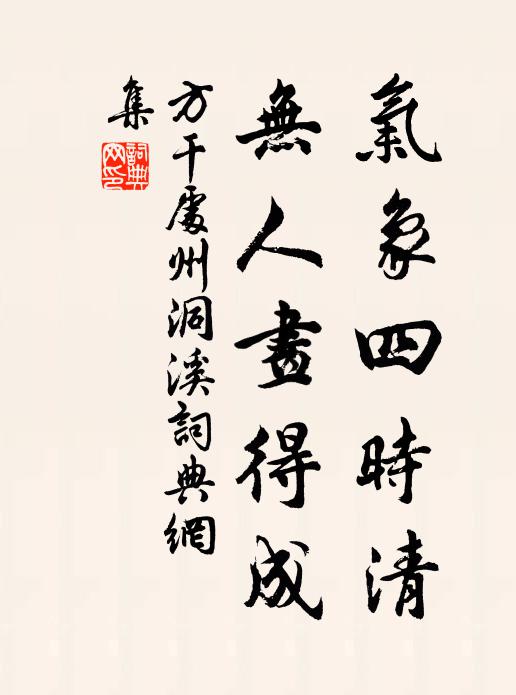 氣象四時清
無人畫得成
方干處州洞溪詞典網
集
詞典
网印